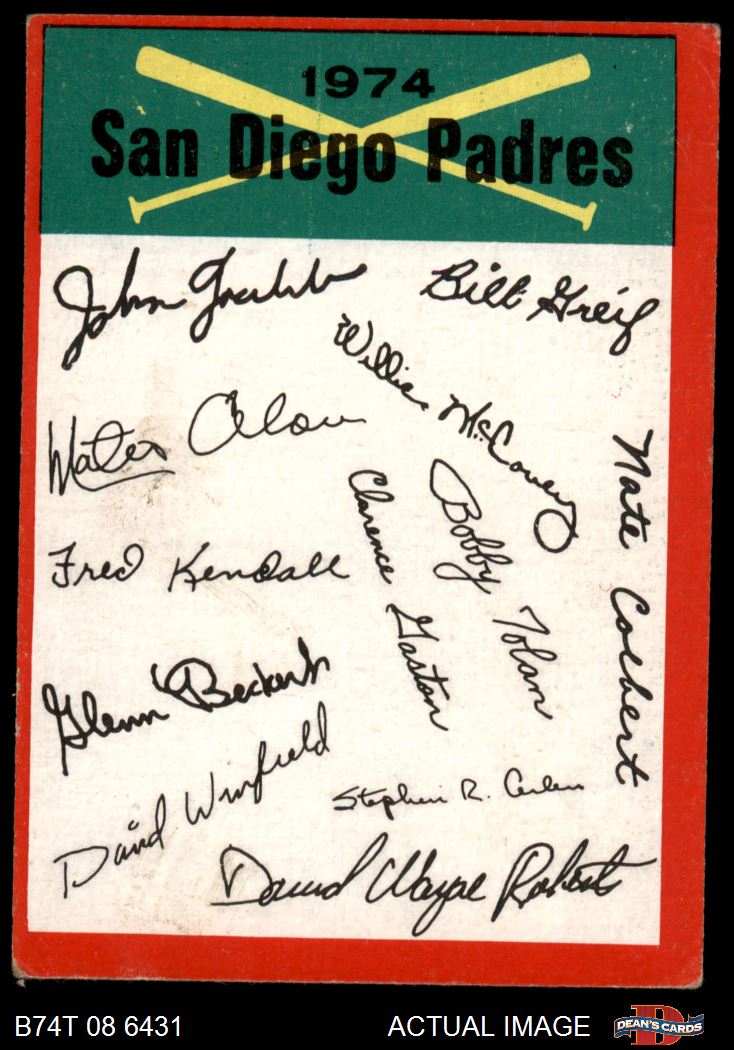 1974
San Diego Padres
John Grubb
Bill Greif
Willie McCovey
Mateo Alou
Nate Colbert
Clarence Gaston
Bobby Tolan
Fred Kendall
Glenn Beckert
David Winfield
Stephen R. Arlin
David Wayne Roberts
B74T 08 6431
ACTUAL IMAGE
D
DEAN'S CARDS